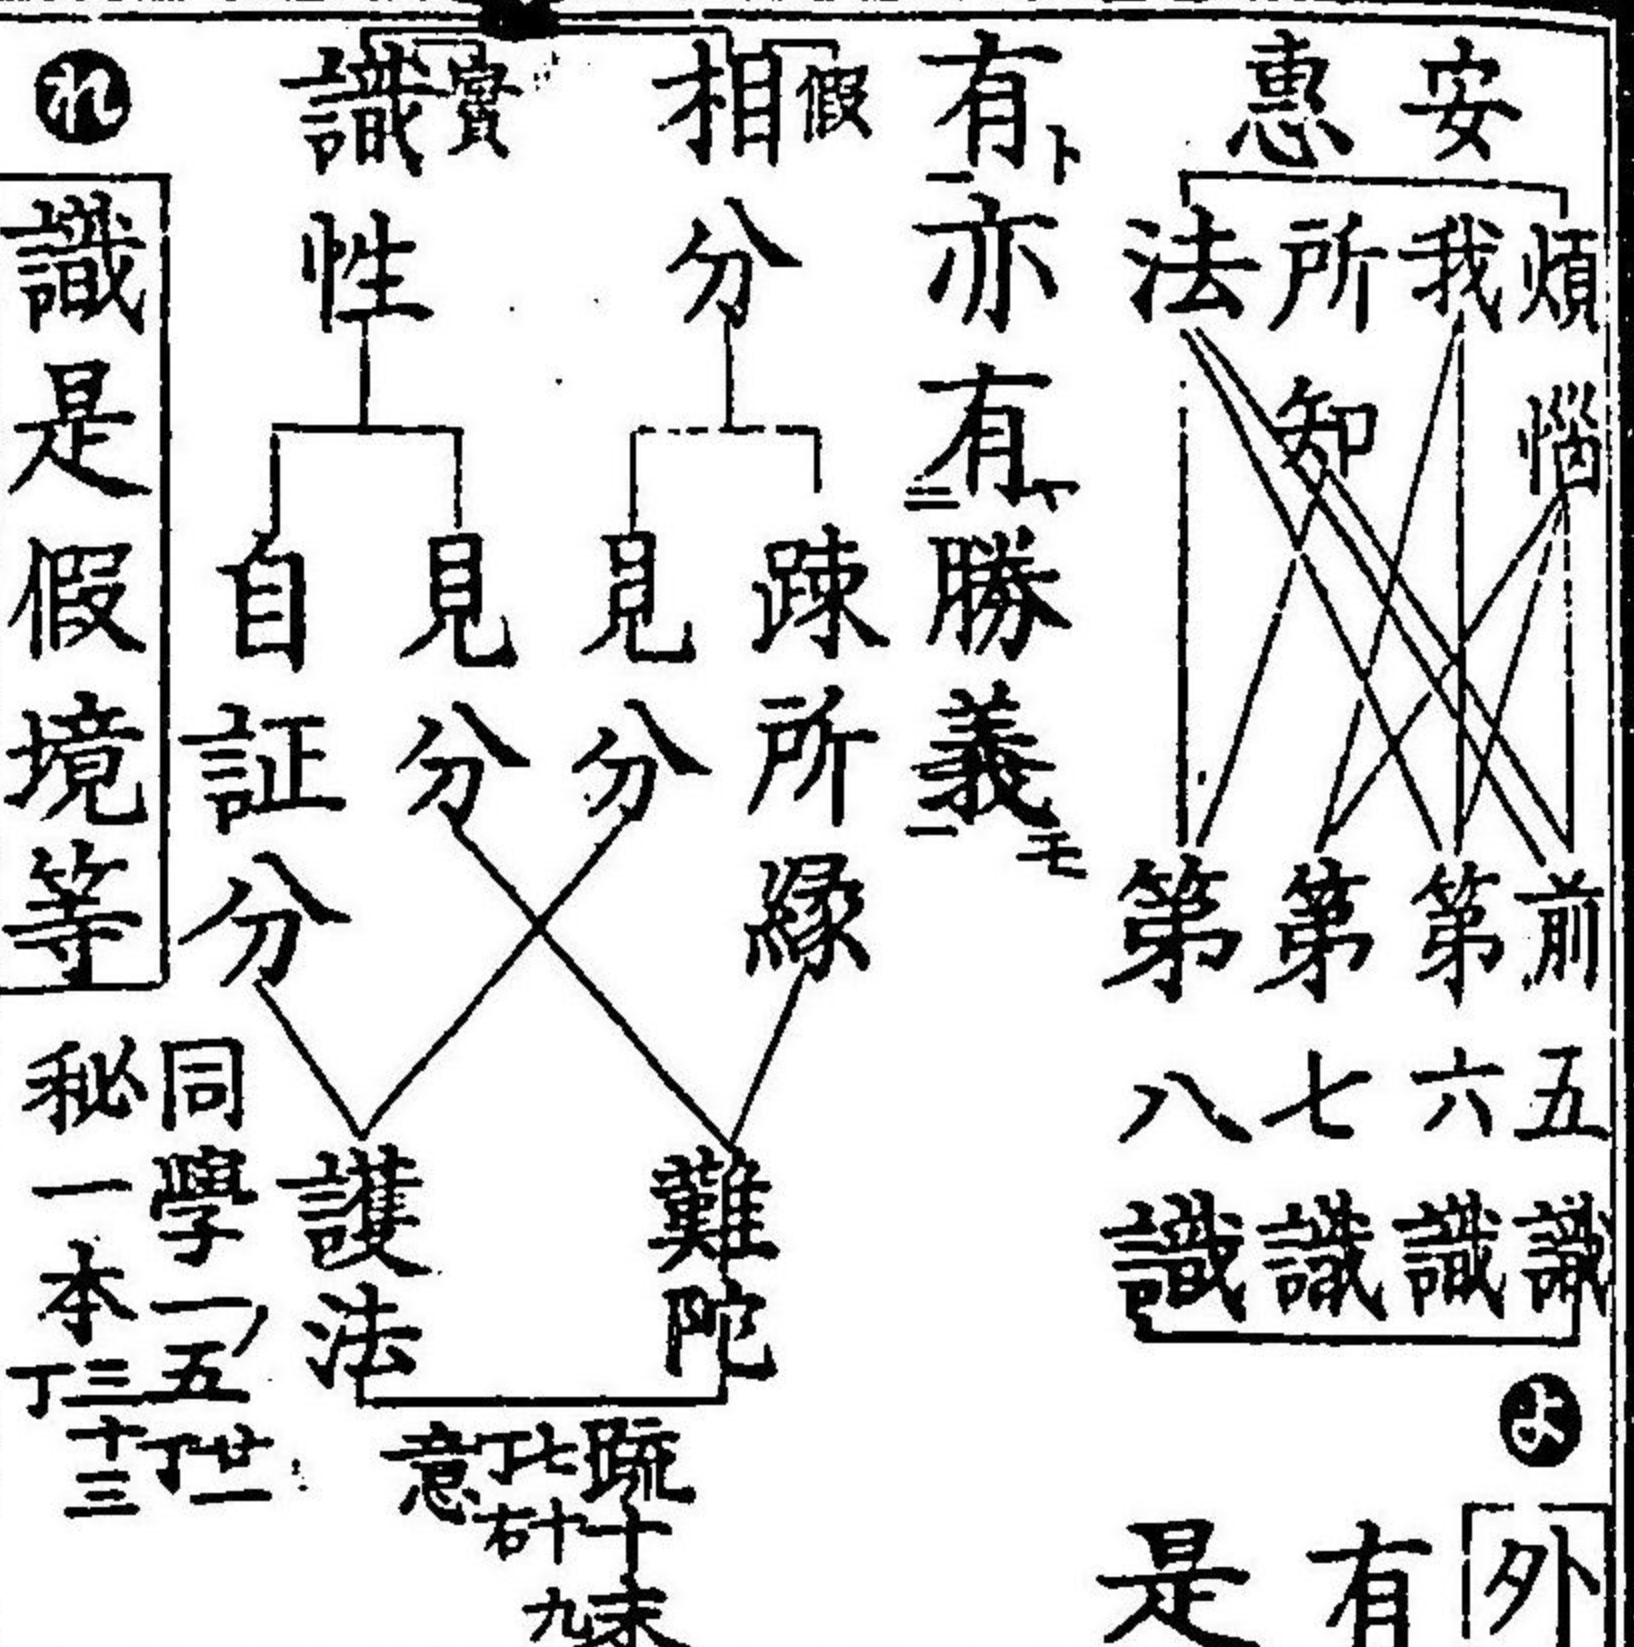 安惠
煩惱
我
所知
法
前五識
第六識
第七識
第八識
よ
外
有
是
有ト亦有下勝義モ
二
三
一
假
相分
疎所縁
見分
實
識性
見分
自証分
難陀
護法
疏十末
七丁十九右
意
れ
識是假境等
同學一ノ五廿一丁
秘一本三十三丁